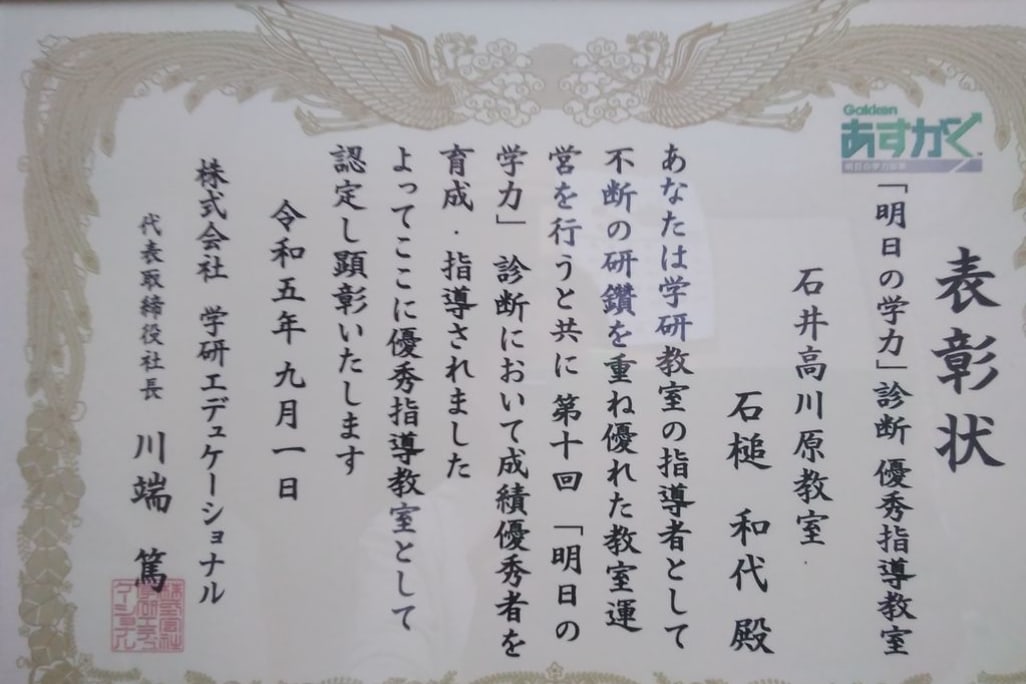 Gakken
あすがく
明日の学力診断
表彰状
「明日の学力」診断 優秀指導教室
石井高川原教室
石槌 和代 殿
あなたは学研教室の指導者として
不断の研鑽を重ね優れた教室運
営を行うと共に 第十回 「明日の
学力」 診断において成績優秀者を
育成・指導されました
よってここに優秀指導教室として
認定し顕彰いたします
令和五年 九月一日
株式会社 学研エデュケーショナル
代表取締役社長 川端 篤